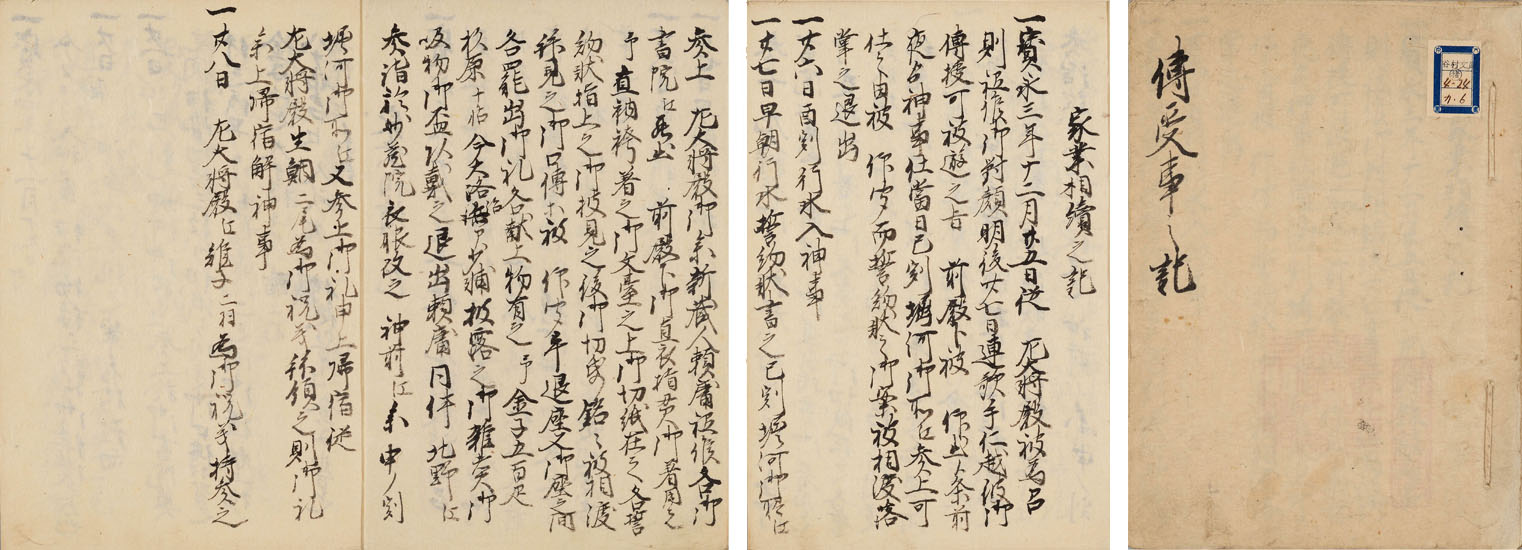 傳受事之記
谷村文庫
4-24
カ-6
家業相續之記
一寳永三年十二月廿五日従 左大將殿被為召
則祗候御對顔明後廿七日連歌手仁越彼御
傳授可被遊之旨 前殿下被 仰出候条前
夜占神事仕當日巳刻堀河御所江参上可
仕之由被 仰渡而誓約状之御案被相渡略
掌之退出
一廿六日酉刻行水入神事
一廿七日早朝行水誓約状書之巳刻堀河御所江
参上 左大將殿御余新蔵人頼庸祗候各御
書院江罷出 前殿下御直衣指貫御着用之
予直衲袴着之御文臺之上御切紙在之各誓
約状指上之御披見之後御切紙銘々被相渡
拝見之御口傳等被 仰聞畢退座又御座之間
各罷出御礼各献上物有之予金子五百疋
杉原十帖今大路治部少輔披露之御雑煮御
吸物御盃頂戴之退出頼庸同伴北野江
参詣於妙蔵院衣服改之 神前江参申ノ刻
堀河御所江又参上御礼申上帰宿従
左大將殿生鯛二尾為御祝義拝領之則御礼
参上帰宿解神事
一廿八日 左大將殿江雉子二羽為御祝義持参之